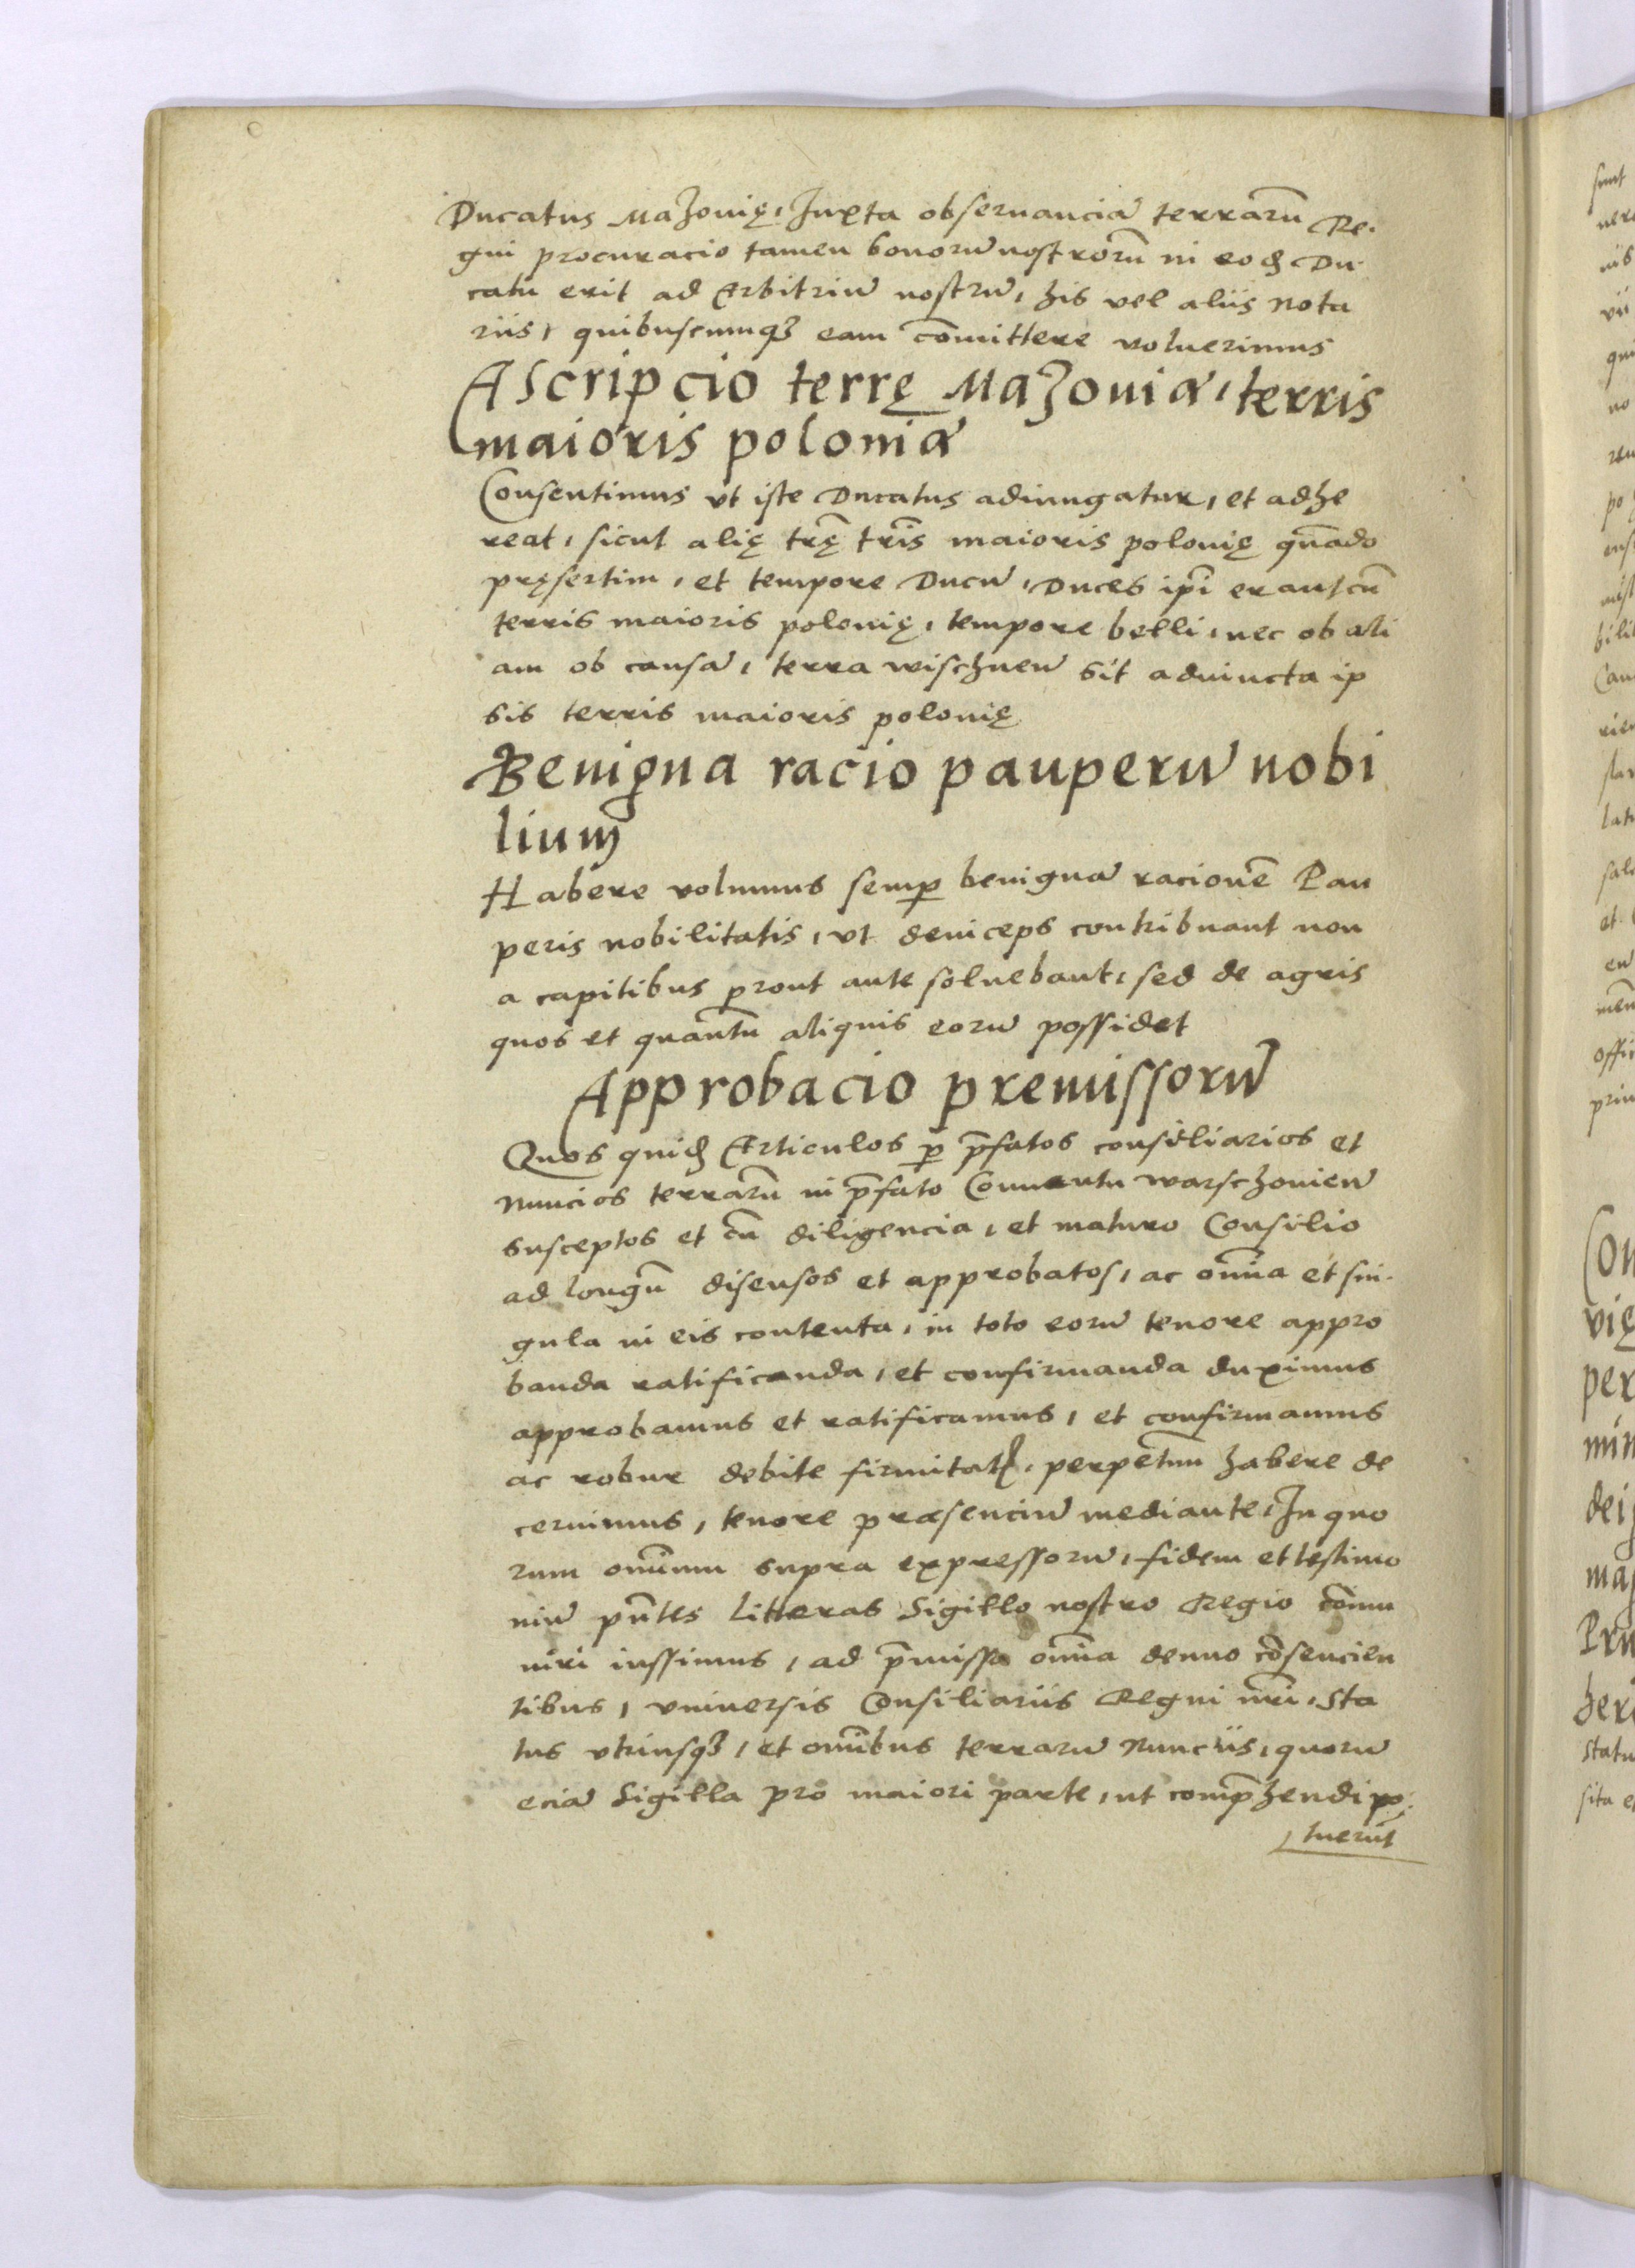 Ducatus Mazouię, Juxta obseruanciā terrarū Re.
gni procuracio tamen bonorū nostrorū in eodē Du
catu erit ad Arbitriū nostrū, his vel aliis Nota
riis, quibuscumqȝ eam cōmittere voluerimus
Ascripcio terrę Mazouiæ, terris
maioris poloniæ
Consentimus vt iste Ducatus adiungatur, et adhe
reat, sicut alię trę̄ trīs maioris polonię quādo
pręsertim, et tempore Ducū, Duces ipī erant cū
terris maioris polonię, tempore belli, nec ob ali
am ob causā, terra wischnen̄ sit adiuncta ip
sis terris maioris polonię
Benigna racio pauperū nobi
lium
Habere volumus semꝑ benignā racionē Pau
peris nobilitatis, vt deinceps contribuant non
a capitibus prout ante soluebant, sed de agris
quos et quantū aliquis eorū possidet
Approbacio premissorū
Quos quidē Articulos ꝑ p̄fatos consiliarios et
nuncios terrarū in p̄fato Conuentu warschouien̄
susceptos et cū diligencia, et maturo Consilio
ad longū disensos et approbatos, ac om̄ia et sin.
gula in eis contenta, in toto eorū tenore appro
banda ratificanda, et confirmanda duximus
approbamus et ratificamus, et confirmamus
ac robur debite firmitatꝭ, perpetuū habere de
cernimus, tenore præsenciū mediante, In quo
rum om̄ium supra expressorū, fidem et testimo
niū pn̄tes litteras Sigillo nostro Regio cōmu
niri iussimus, ad p̄missa om̄ia denuo cōsencien
tibus, vniuersis Consiliariis Regni nrī, Sta
tus vtriusqȝ, et om̄ibus terrarū Nunciis, quorū
eciā Sigilla pro maiori parte, ut comp̄hendi po.
tuerūt